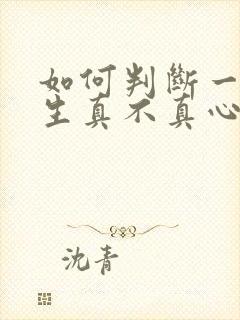 如何判斷一
生真不真心
沈青